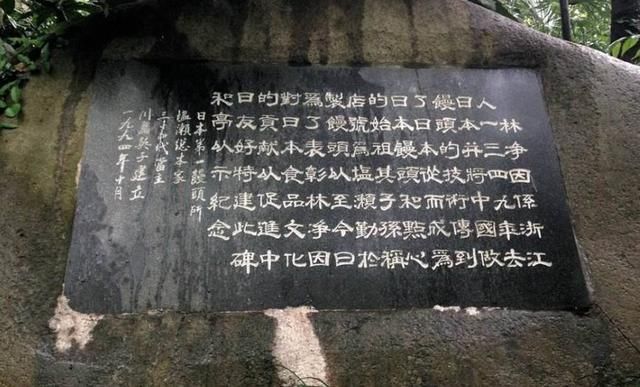 林淨因係浙江
人一三四九年去
日本并將中國做
饅頭的技術傳到
了日本從而成爲
日本饅頭和點心
的始祖其子孫稱
店號爲塩瀨勤於
製饅頭以至今日
爲了表彰林淨因
對日本食品文化
的貢獻以促進中
日友好特建此碑
和亭以示紀念
日本第一饅頭所
塩瀬総本家
三十四代當主
川島英子建立
一九九四年十月